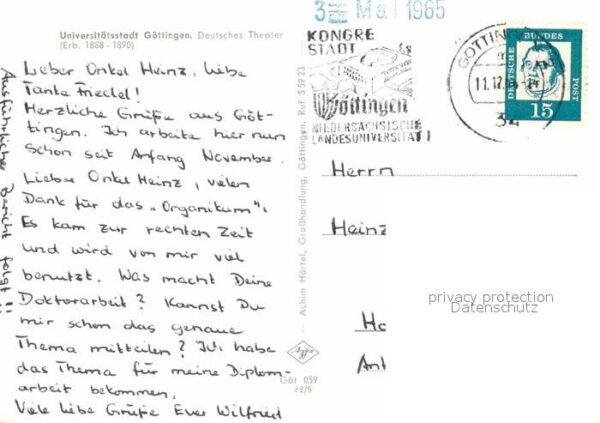 3 Mai 1965
Universitätsstadt Göttingen. Deutsches Theater
(Erb. 1888 - 1890)
Lieber Onkel Heinz, liebe
Tante Friedel!
Herzliche Grüße aus Göt-
tingen. Ich arbeite hier nun
schon seit Anfang November.
Lieber Onkel Heinz, vielen
Dank für das „Organikum".
Es kam zur rechten Zeit
und wird von mir viel
benutzt. Was macht Deine
Doktorarbeit? Kannst Du
mir schon das genaue
Thema mitteilen? Ich habe
das Thema für meine Diplom-
arbeit bekommen.
Viele liebe Grüße Euer Wilfried
Ausführlicher Bericht folgt!!
Achim Hartel, Großhandlung, Göttingen, Ruf 5 59 23
Agfa
Göt 059
62/5
KONGRE
STADT
Göttingen
NIEDERSÄCHSISCHE
LANDESUNIVERSITÄT
GÖTTINGEN
11.12.
34
DEUTSCHE
BUNDES
POST
15
Herrn
Heinz
Ha
Ant
privacy protection
Datenschutz